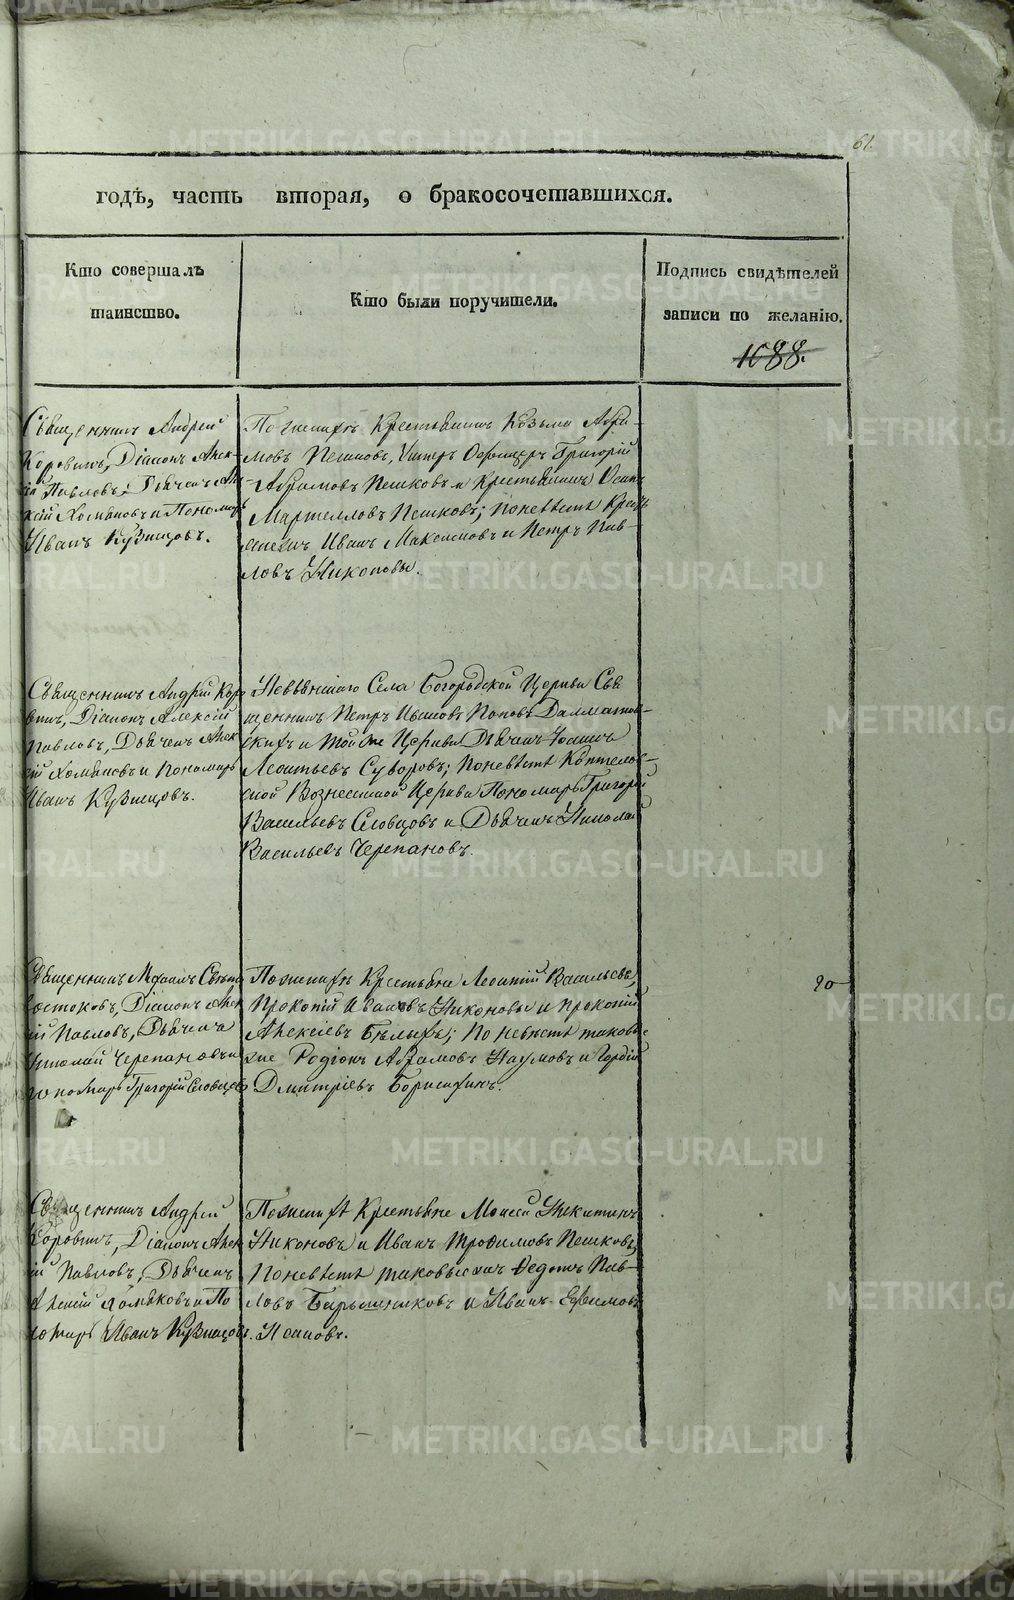 61.
годъ, часть вторая, о бракосочетавшихся.
Кто совершалъ
таинство.
Кто были поручители.
Подпись свидѣтелей
записи по желанію.
1688.
Священникъ Андрей
Коровинъ, Діаконъ Алек-
сій Павловъ, Дьячекъ Але
ксій Хомяковъ и Пономарь
Иванъ Кузнецовъ.
По женихѣ Крестьянинъ Козьма Абра-
мовъ Пешковъ, Унтеръ Офицеръ Григорій
Абрамовъ Пешковъ и Крестьянинъ Осипъ
Пешковъ; по невѣстѣ Кресть
яне Иванъ Максимовъ и Петръ Пав-
ловъ Никоновы.
Священникъ Андрей Коро
винъ, Діаконъ Алексій
Павловъ, Дьячекъ Алек
сій Хомяковъ и Пономарь
Иванъ Кузнецовъ.
Невьянскаго Села Богородской Церкви Свя
щенникъ Петръ Ивановъ Поповъ Далматов-
скихъ и той же Церкви Дьячекъ Іоаннъ
Леонтьевъ Суворовъ; по невѣстѣ Коптелов-
ской Вознесенской Церкви Пономарь Григорій
Васильевъ Словцовъ и Дьячекъ Николай
Васильевъ Черепановъ.
Священникъ Михаилъ Свѣто
востоковъ, Діаконъ Алек
сій Павловъ, Дьячекъ
Николай Черепановъ и
пономарь Григорій Словцовъ
По женихѣ Крестьяне Леонтій Васильевъ,
Прокопій Ивановъ Никоновы и Прокопій
Алексіевъ Бѣлыхъ; По невѣстѣ таковы
же Родіонъ Абрамовъ Наумовъ и Гордій
Дмитріевъ Борисихинъ.
20
Священникъ Андрей
Коровинъ, Діаконъ Алек
сій Павловъ, Дьячекъ
Алексій Хомяковъ и По
номарь Иванъ Кузнецовъ.
По женихѣ Крестьяне Моисей Никитинъ
Никоновъ и Иванъ Трофимовъ Пешковъ,
По невѣстѣ таковые же Федотъ Пав-
ловъ Барышниковъ и Иванъ Ефимовъ